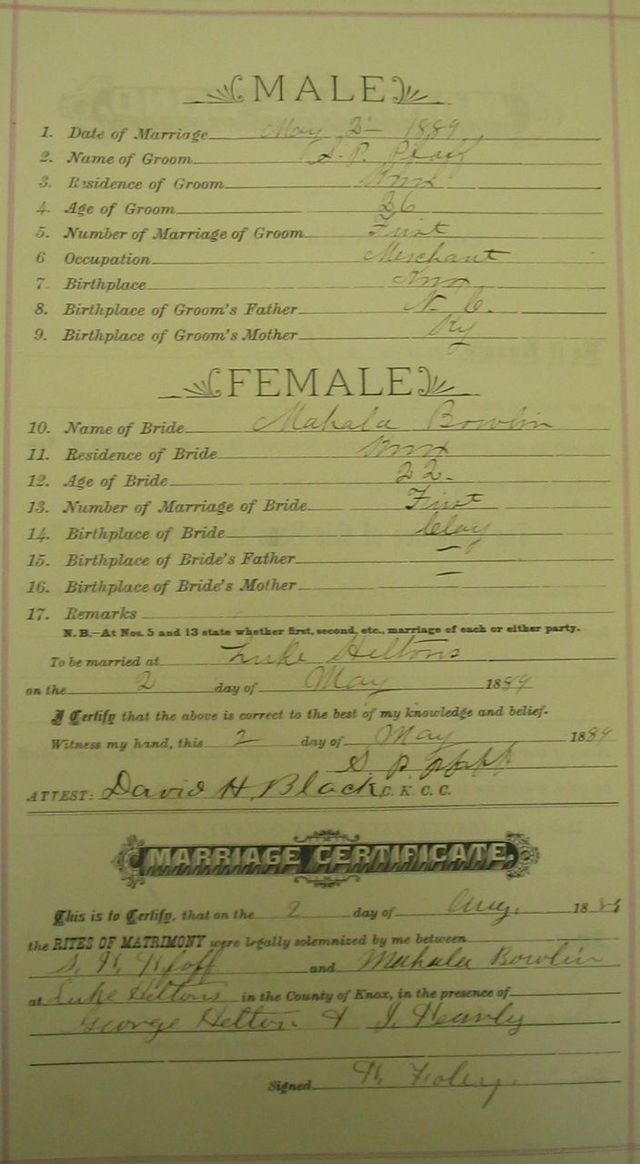 MALE
1. Date of Marriage May 2 1889
2. Name of Groom S. P. Pfaff
3. Residence of Groom Knox
4. Age of Groom 26
5. Number of Marriage of Groom First
6 Occupation Merchant
7 Birthplace Knox
8. Birthplace of Groom's Father N. C.
9. Birthplace of Groom's Mother Ky
FEMALE
10. Name of Bride Mahala Bowlin
11. Residence of Bride Knox
12. Age of Bride 22.
13. Number of Marriage of Bride First
14. Birthplace of Bride Clay
15. Birthplace of Bride's Father —
16. Birthplace of Bride's Mother —
17. Remarks
N. B.—At Nos. 5 and 13 state whether first, second, etc., marriage of each or either party.
To be married at Luke Heltons
on the 2 day of May 1889
I Certify that the above is correct to the best of my knowledge and belief.
Witness my hand, this 2 day of May 1889
S. P. Pfaff
ATTEST: David H. Black C. K. C. C.
MARRIAGE CERTIFICATE.
This is to Certify, that on the 2 day of 18
the RITES OF MATRIMONY were legally solemnized by me between
Pfaff and Mahala Bowlin
at Luke Heltons in the County of Knox, in the presence of
George Helton & J.
Signed Foley.